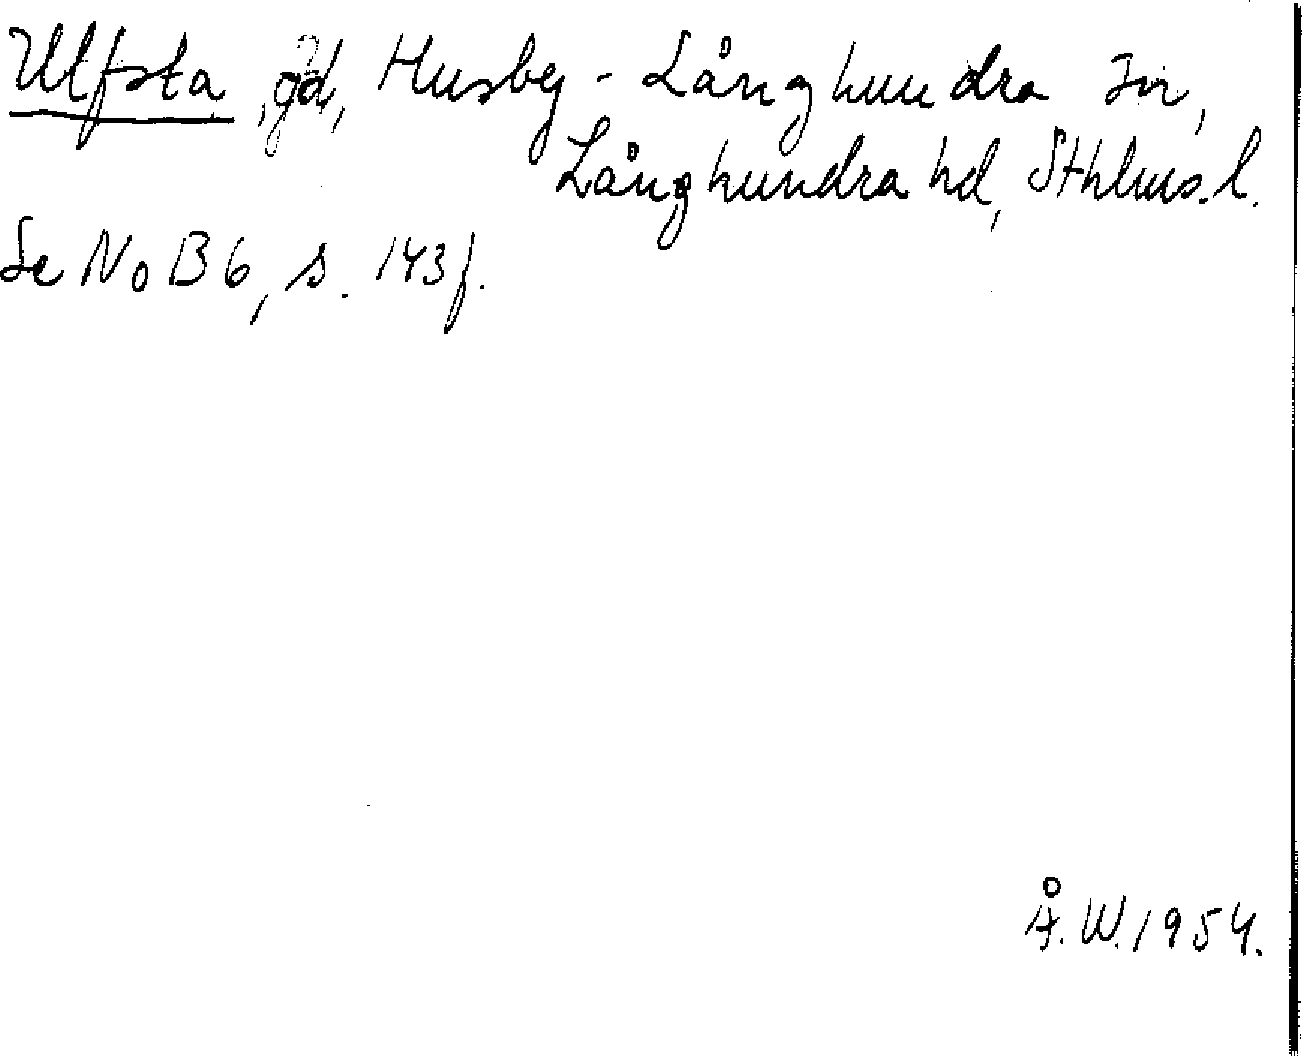 Ulfsta, gd, Husby-Långhundra sn,
Långhundra hd, Sthlms.l.
Se NoB 6, s. 143f.
Å.W. 1954.